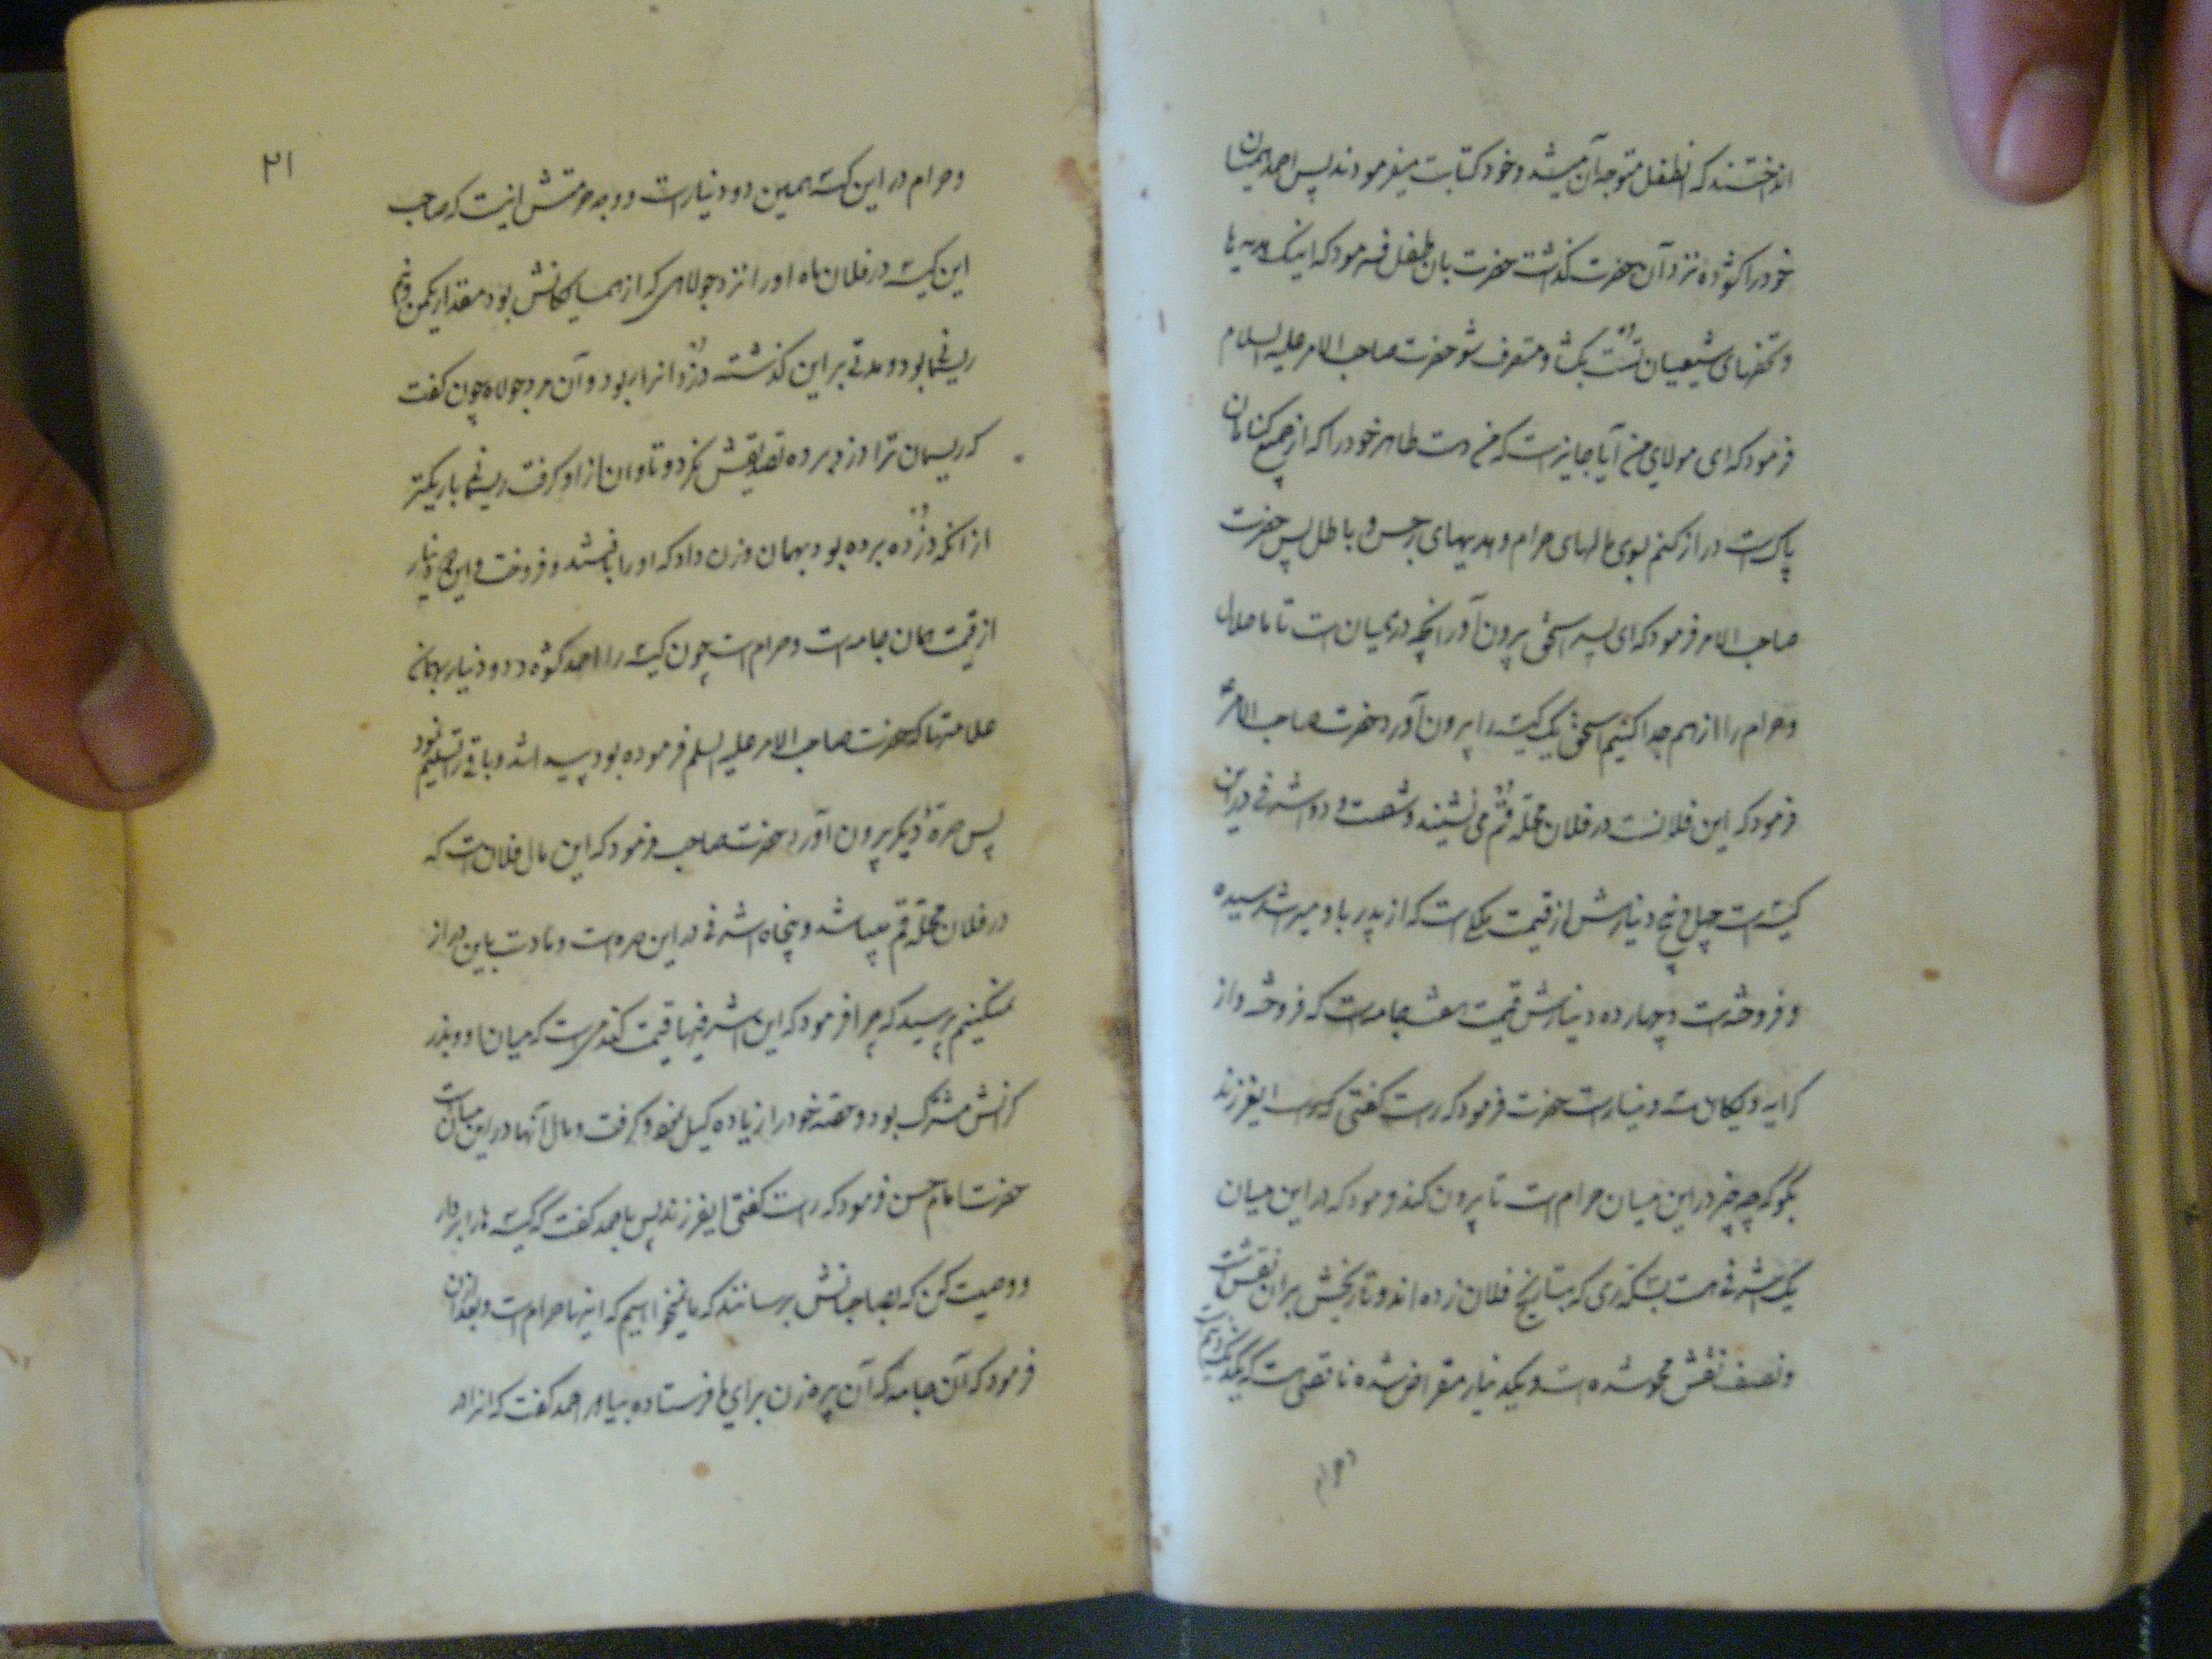 انداختند که آنطفل متوجه آن میشد و خود کتابت میفرمودند پس احمد همیان
خود را کشوده نزد آن حضرت گذاشت حضرت بان طفل فرمود که اینک هدیه ها
و تحفهای شیعیان تست بگشا و متصرف شو حضرت صاحب الامر علیه السلام
فرمود که ای مولای من آیا جایز است که من دست طاهر خود را که از جمیع گناهان
پاکست دراز کنم بسوی مالهای حرام و هدیهای رجس و باطل پس حضرت
صاحب الامر فرمود که ای پسر اسحق بیرون آور آنچه در همیان است تا ما حلال
و حرام را از هم جدا کنیم اسحق یک کیسه را بیرون آورد حضرت صاحب الامر ع
فرمود که این از فلانست در فلان محله قم می نشیند و شصت و دو اشرفی در این
کیسه است چهل و پنج دینارش از قیمت ملکی است که از پدر باو میراث رسیده
و فروخته است و چهارده دینارش قیمت هفت جامه است که فروخته و از
کرایه دکان سه دینار است حضرت فرمود که راست گفتی ای فرزند
بگو که چه چیز در این میان حرام است تا بیرون کند فرمود که در این میان
یک اشرفی هست بسکه ری که بتاریخ فلان زده اند و تاریخش بران نقش است
و نصف نقش محو شده است و یکدینار مقراض شده ناقصی هست که یکدانک و نیم است
و حرام
۲۱
و حرام در این کیسه همین دو دینار است و وجه حرمتش اینست که صاحب
این کیسه در فلان ماه او را نزد جولاهی که از همسایگانش بود مقدار یکمن و نیم
ریسمان بود و مدتی بر این گذشت دزد آنرا ربود و آن مرد جولاه چون گفت
که ریسمان ترا دزد برده تصدیقش نکرد و تاوان از او گرفت ریسمانی باریکتر
از آنکه دزد برده بود بهمان وزن داد که او را بافتند و فروخت و این دو دینار
از قیمت همان جامه است و حرام است چون کیسه را احمد کشود دو دینار بهمان
علامتها که حضرت صاحب الامر علیه السلم فرموده بود پیدا شد و باقی را تسلیم نمود
پس صره دیگر بیرون آورد حضرت صاحب فرمود که این مال فلان است که
در فلان محله قم میباشد و پنجاه اشرفی در این صره است و ما دست باین دراز
نمیکنیم پرسید که چرا فرمود که این اشرفیها قیمت گندمی است که میان او و برزگرانش
مشترک بود و حصه خود را زیاده کیل نمود و گرفت و مال آنها در این میان است
حضرت امام حسن فرمود که راست گفتی ای فرزند پس باحمد گفت که کیسه ها را بردار
و وصیت کن که بصاحبانش برسانند که ما نمیخواهیم که اینها حرام است و بعد از آن
فرمود که آن جامه که آن پیره زن برای ما فرستاده بیاور احمد گفت که آنرا در